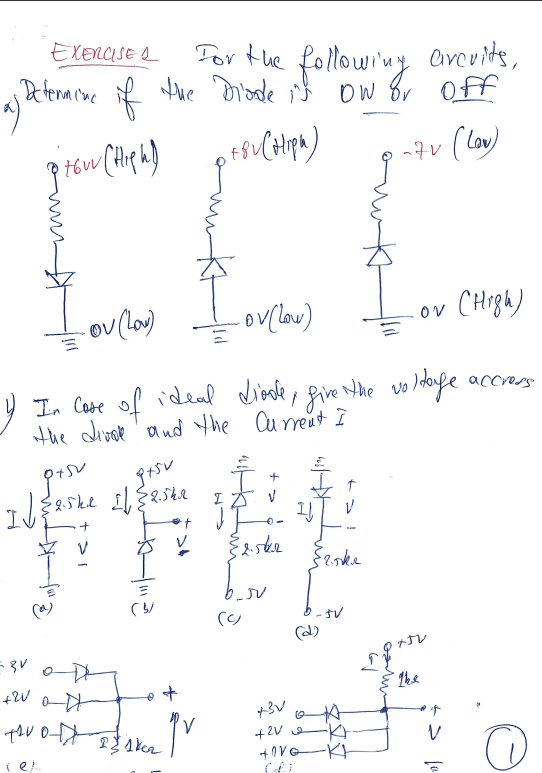 EXERCISE 1 For the following circuits,
a) Determine if the Diode is ON or OFF
+6V (High) +8V (High) -7V (Low)
0V (Low) 0V (Low) 0V (High)
In Case of ideal diode, give the voltage accross
the diode and the Current I
+5V +5V
I 2.5kΩ I 2.5kΩ I + V - I + V -
+ V - + V - 2.5kΩ 2.5kΩ
-5V -5V
(a) (b) (c) (d)
+3V +5V
+2V + I 1kΩ
+1V I 1kΩ V +3V +
+2V V
+1V
(e) 1